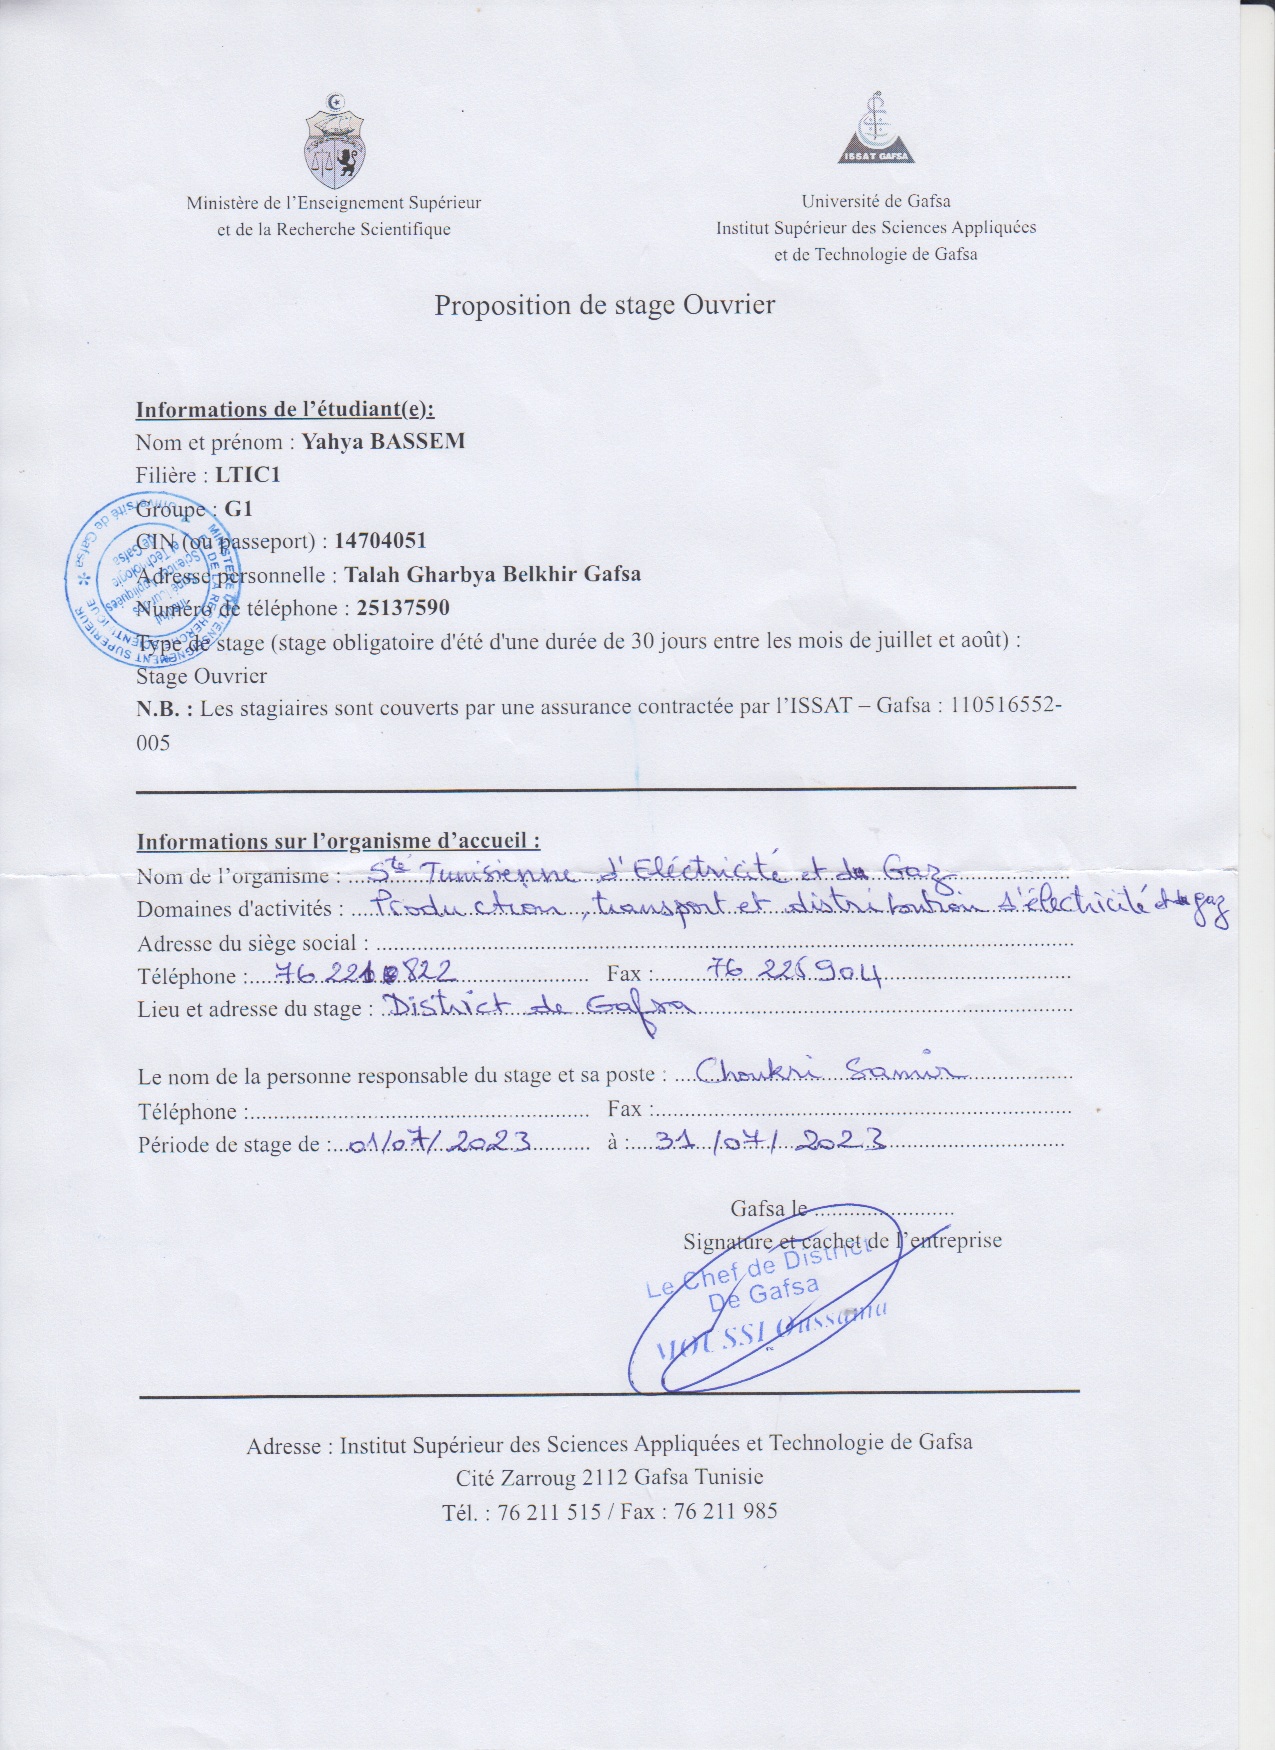 ISSAT GAFSA
Ministère de l'Enseignement Supérieur
et de la Recherche Scientifique
Université de Gafsa
Institut Supérieur des Sciences Appliquées
et de Technologie de Gafsa
Proposition de stage Ouvrier
Informations de l'étudiant(e):
Nom et prénom : Yahya BASSEM
Filière : LTIC1
Groupe : G1
CIN (ou passeport) : 14704051
Adresse personnelle : Talah Gharbya Belkhir Gafsa
Numéro de téléphone : 25137590
Type de stage (stage obligatoire d'été d'une durée de 30 jours entre les mois de juillet et août) :
Stage Ouvrier
N.B. : Les stagiaires sont couverts par une assurance contractée par l'ISSAT – Gafsa : 110516552-
005
Informations sur l'organisme d'accueil :
Nom de l'organisme : Sté Tunisienne d'Eléctricité et du Gaz
Domaines d'activités : Production, transport et distribution d'électricité et du gaz
Adresse du siège social :
Téléphone : 76 822 Fax : 76 225 904
Lieu et adresse du stage : District de Gafsa
Le nom de la personne responsable du stage et sa poste : Choukri Samir
Téléphone : Fax :
Période de stage de : 01/07/2023 à : 31/07/2023
Gafsa le
Signature et cachet de l'entreprise
Le Chef de District
De Gafsa
MOUSSI Oussama
Adresse : Institut Supérieur des Sciences Appliquées et Technologie de Gafsa
Cité Zarroug 2112 Gafsa Tunisie
Tél. : 76 211 515 / Fax : 76 211 985